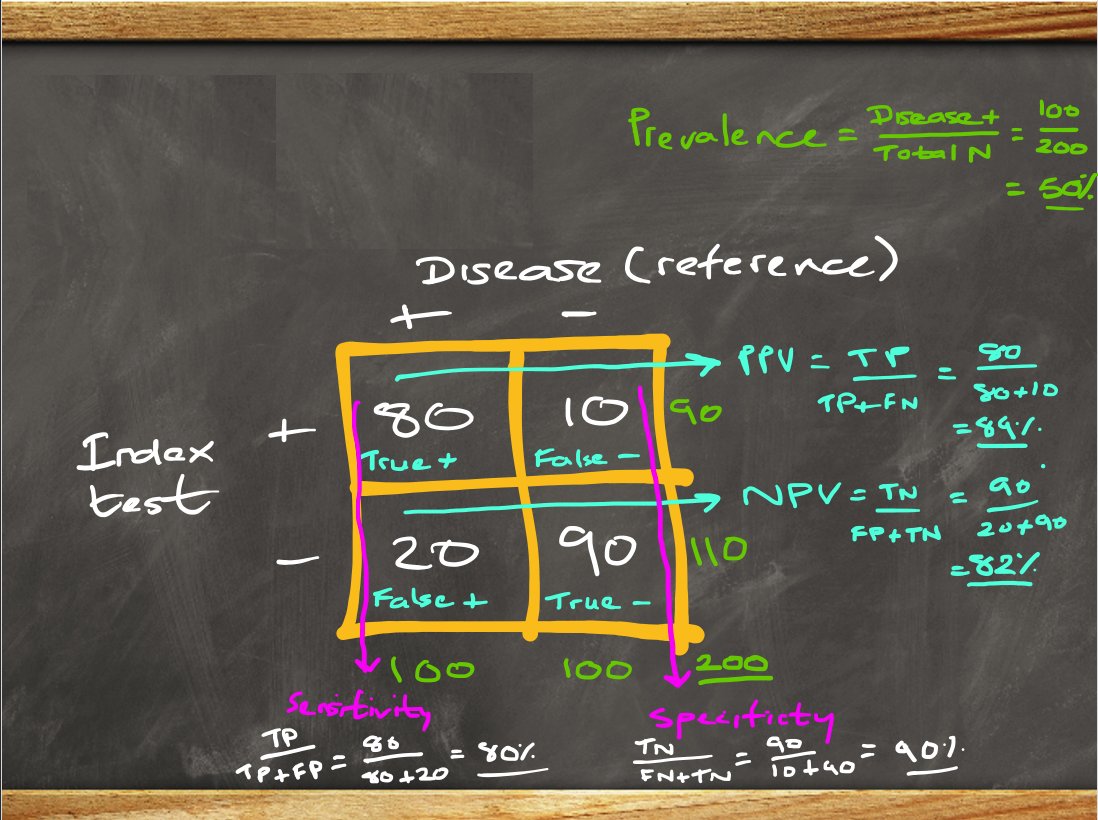 Prevalence = Disease + / Total N = 100 / 200
= 50%
Disease (reference)
+ −
Index test
+ 80 10 90
True + False −
PPV = TP / TP+FN = 80 / 80+10
= 89%
− 20 90 110
False + True −
NPV = TN / FP+TN = 90 / 20+90
= 82%
100 100 200
Sensitivity
TP / TP+FP = 80 / 80+20 = 80%
Specificty
TN / FN+TN = 90 / 10+90 = 90%